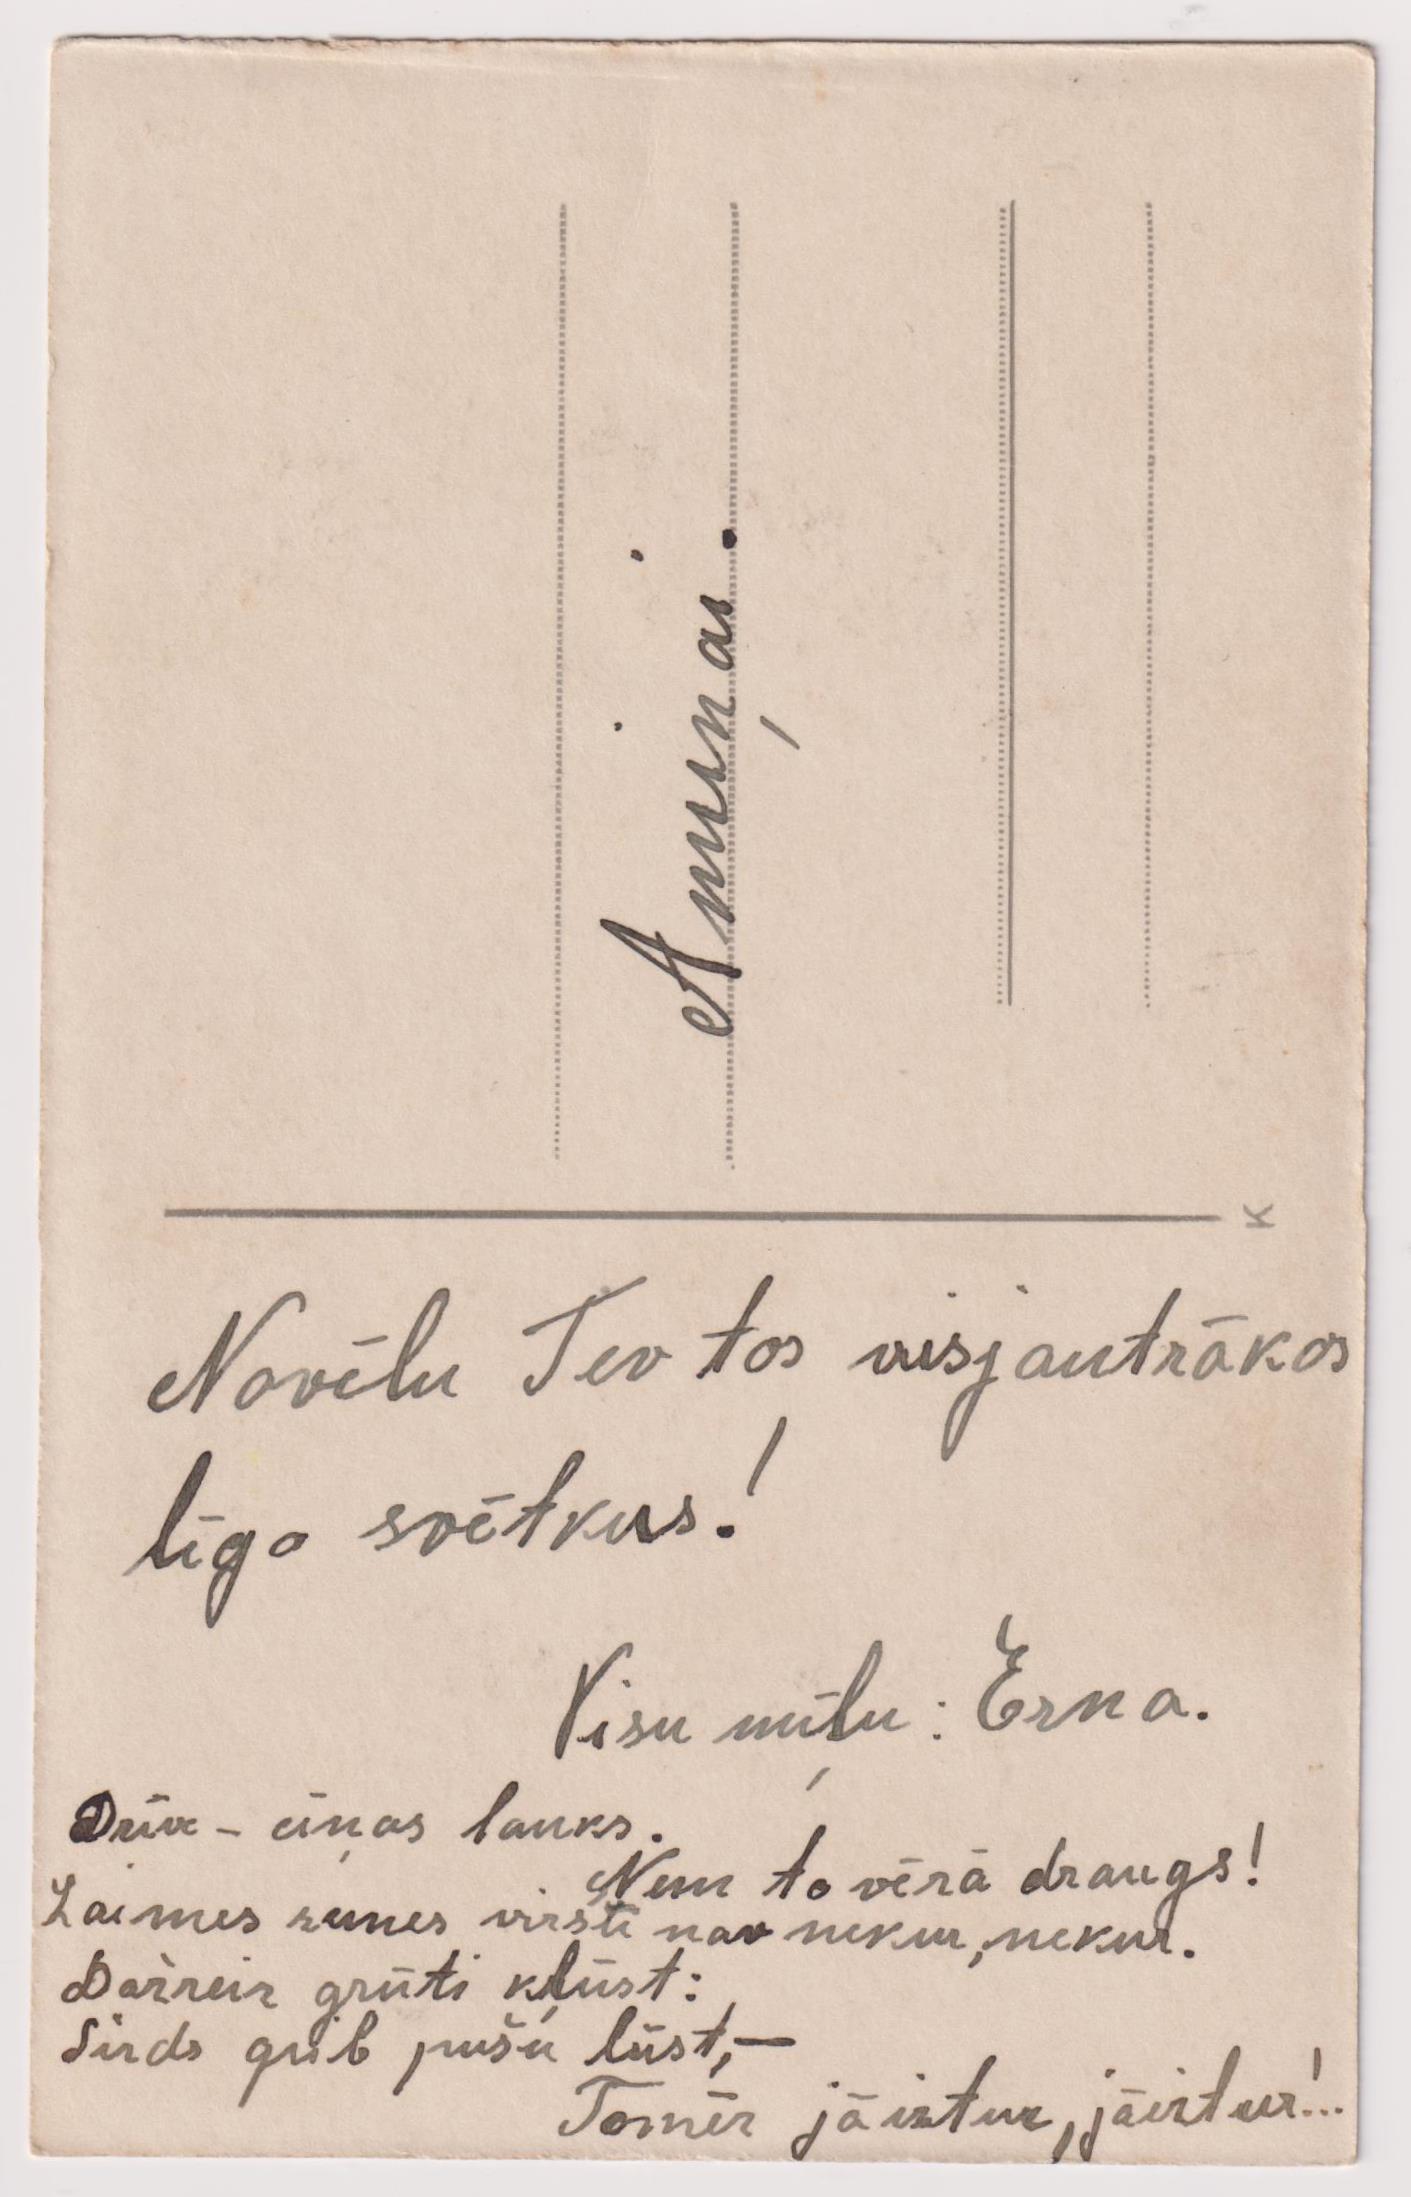 Anniņai.
K
Novēlu Tev tos visjautrākos
līgo svētkus!
Visu mīļu: Erna.
Dzīve - cīņas lauks.
Ņem to vērā draugs!
Laimes zemes virsū nav nekur, nekur.
Dažreiz grūti kļūst:
Sirds grib pušu lūst, —
Tomēr jāiztur, jāiztur!...